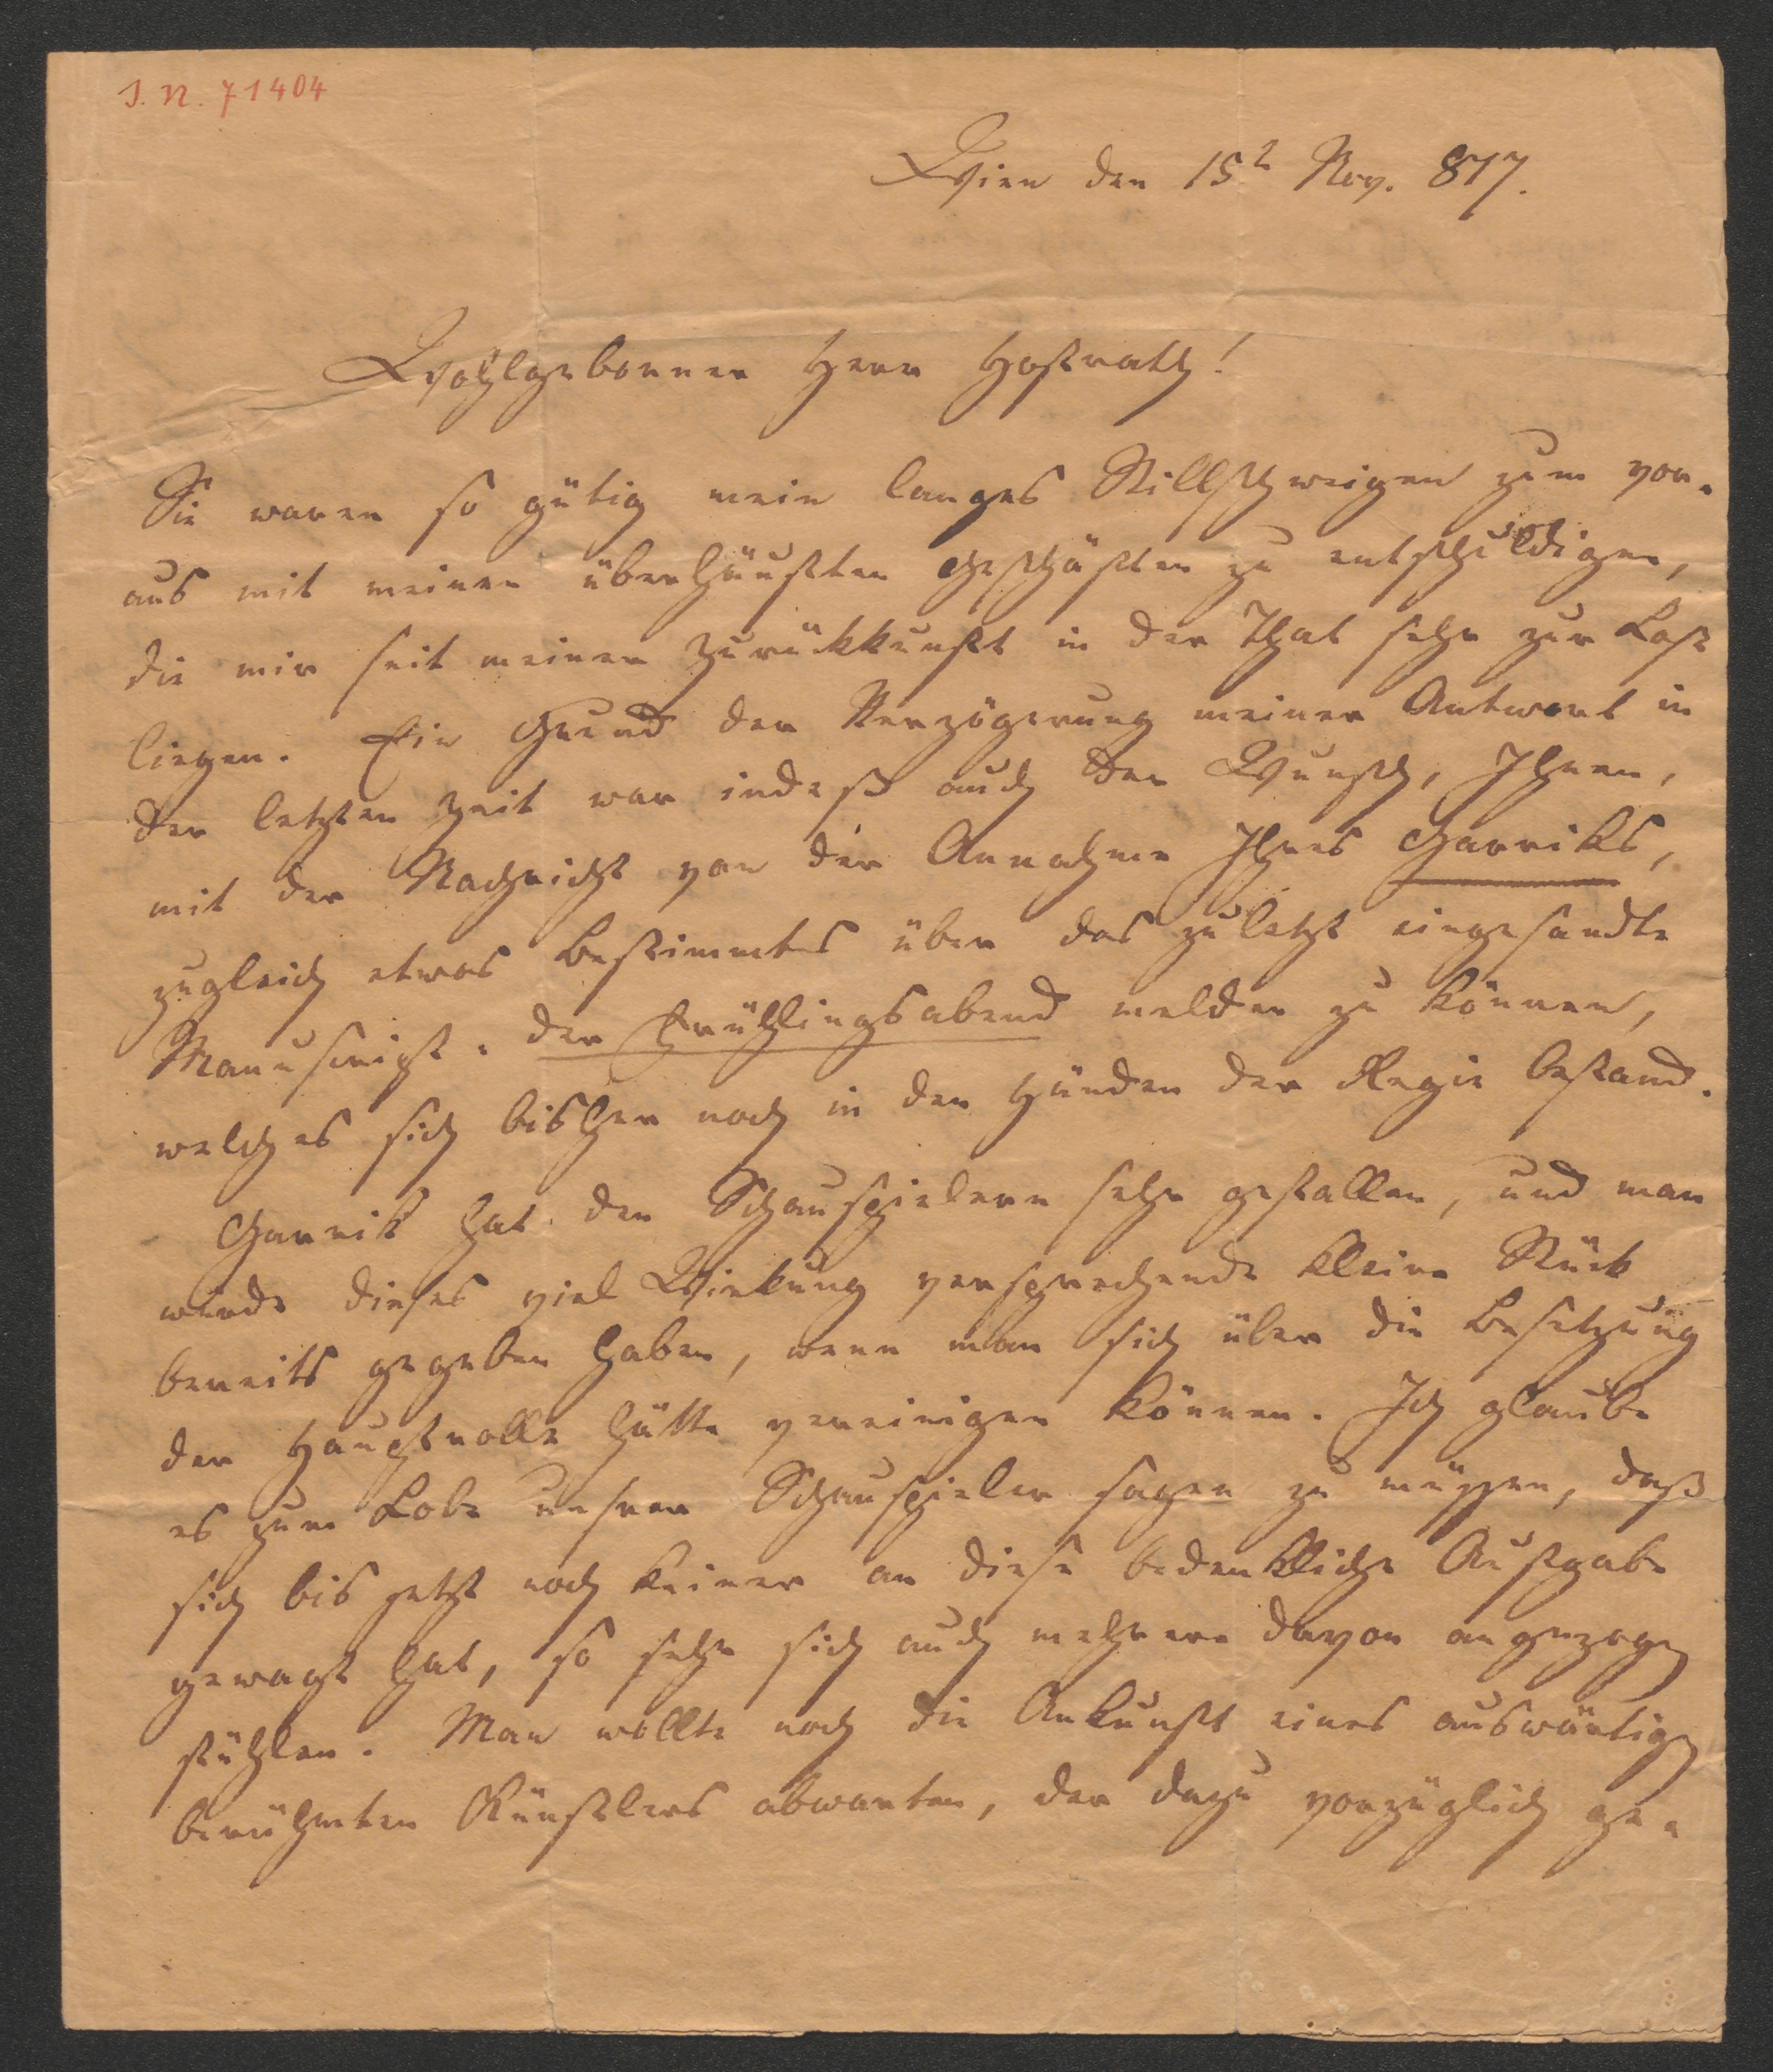 I. N. 71404
Wien den 15t Nov. 817.
Wohlgeborner Herr Hofrath!
Sie waren so gütig mein langes Stillschweigen zum vor-
aus mit meinen überhäuften Geschäften zu entschuldigen,
die mir seit meiner Zurükkunft in der That sehr zur Last
liegen. Ein Grund der Verzögerung meiner Antwort in
der letzten Zeit war indeß auch der Wunsch, Ihnen,
mit der Nachricht von der Annahme Ihres Garriks,
zugleich etwas Bestimmtes über das zuletzt eingesandte
Manuscript: der Frühlingsabend melden zu können,
welches sich bisher noch in den Händen der Regie befand.
Garrik hat den Schauspielern sehr gefallen, und man
würde dieses viel Wirkung versprechende kleine Stück
bereits gegeben haben, wenn man sich über die Besetzung
der Hauptrolle hätte vereinigen können. Ich glaube
es zum Lobe unsrer Schauspieler sagen zu müssen, daß
sich bis jetzt noch keiner an diese bedenkliche Aufgabe
gewagt hat, so sehr sich auch mehrere davon angezogen
fühlen. Man wollte noch die Ankunft eines auswärtigen
berühmten Künstlers abwarten, der dazu vorzüglich ge-